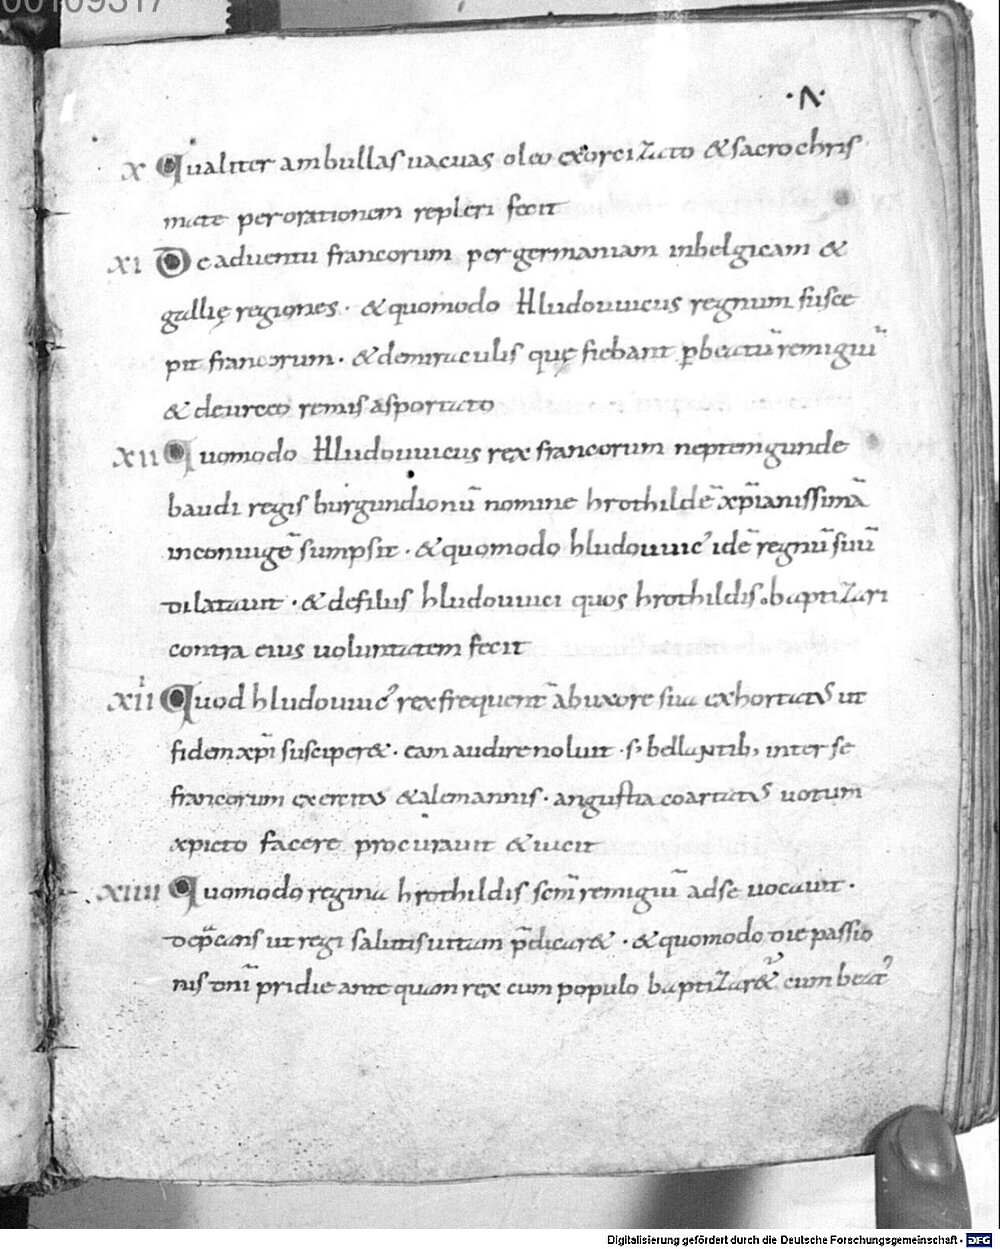 00109317
·Λ·
X Qualiter ambullas uacuas oleo exorcizato & sacro chris
mate per orationem repleri fecit
XI De aduentu francorum per germaniam inbelgicam &
gallię regiones · & quomodo Hludouuicus regnum susce
pit francorum · & demiraculis quę fiebant ꝑ beatū remigiū
& deurceo remis asportato
XII Quomodo Hludouuicus rex francorum neptem gunde
baudi regis burgundionū nomine hrothildē xp̄ianissimā
inconiugē sumpsit · & quomodo hludouuic᾽ idē regnū suū
dilatauit · & defiliis hludouuici quos hrothildis baptizari
contra eius uoluntatem fecit
XIII Quod hludouuic᾽ rex frequent̄ ab uxore sua exhortatus ut
fidem xp̄i susciper& · eam audire noluit · s; bellantib; inter se
francorum exercitus & alemannis · angustia coartatus uotum
xpicto facere procurauit & uicit
XIIII Quomodo regina hrothildis scm̄ remigiū adse uocauit ·
dep̄cans ut regi salutis uitam p̄dicar& · & quomodo die passio
nis dn̄i pridie ante quam rex cum populo baptizar&᾽ cum beat᾽
Digitalisierung gefördert durch die Deutsche Forschungsgemeinschaft - DFG